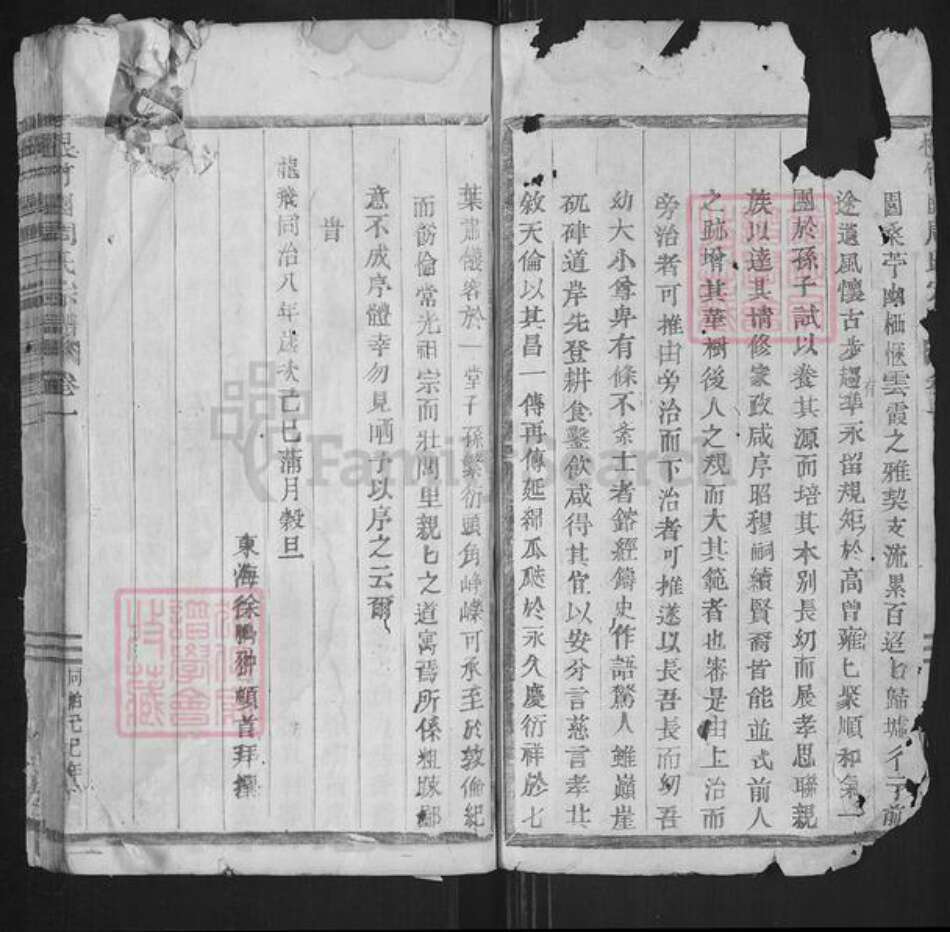 園桑苧幽栖愜雲霞之雅契支流累百迢七歸墟于前
途遥風懷古步趨準永留規矩於高曾雍七聚順和氣一
團於孫子試以養其源而培其本別長幼而展孝思聯親
族以達其情修家政咸序昭穆嗣續賢裔皆能並式前人
之跡增其華樹後人之規而大其範者也審是由上治而
旁治者可推由旁治而下治者可推遂以長吾長而幼吾
幼大小尊卑有條不紊士者鎔經鑄史作語驚人雖巔崖
矹硉道岸先登耕食鑿飲咸得其宜以安分言慈言孝共
敘天倫以其昌一傳再傳延綿瓜瓞於永久慶衍祥於七
葉肅儀容於一堂子孫繫衍頭角崢嶸可承至於敦倫紀
而飭倫常光祖宗而壯閭里親七之道寓焉所係粗疎鄙
意不成序體幸勿見哂予以序之云爾
旹
龍飛同治八年歲次己巳蒲月榖旦
東海徐鳴翀頓首拜撰
周氏宗譜 卷一
同治己巳年
FamilySearch